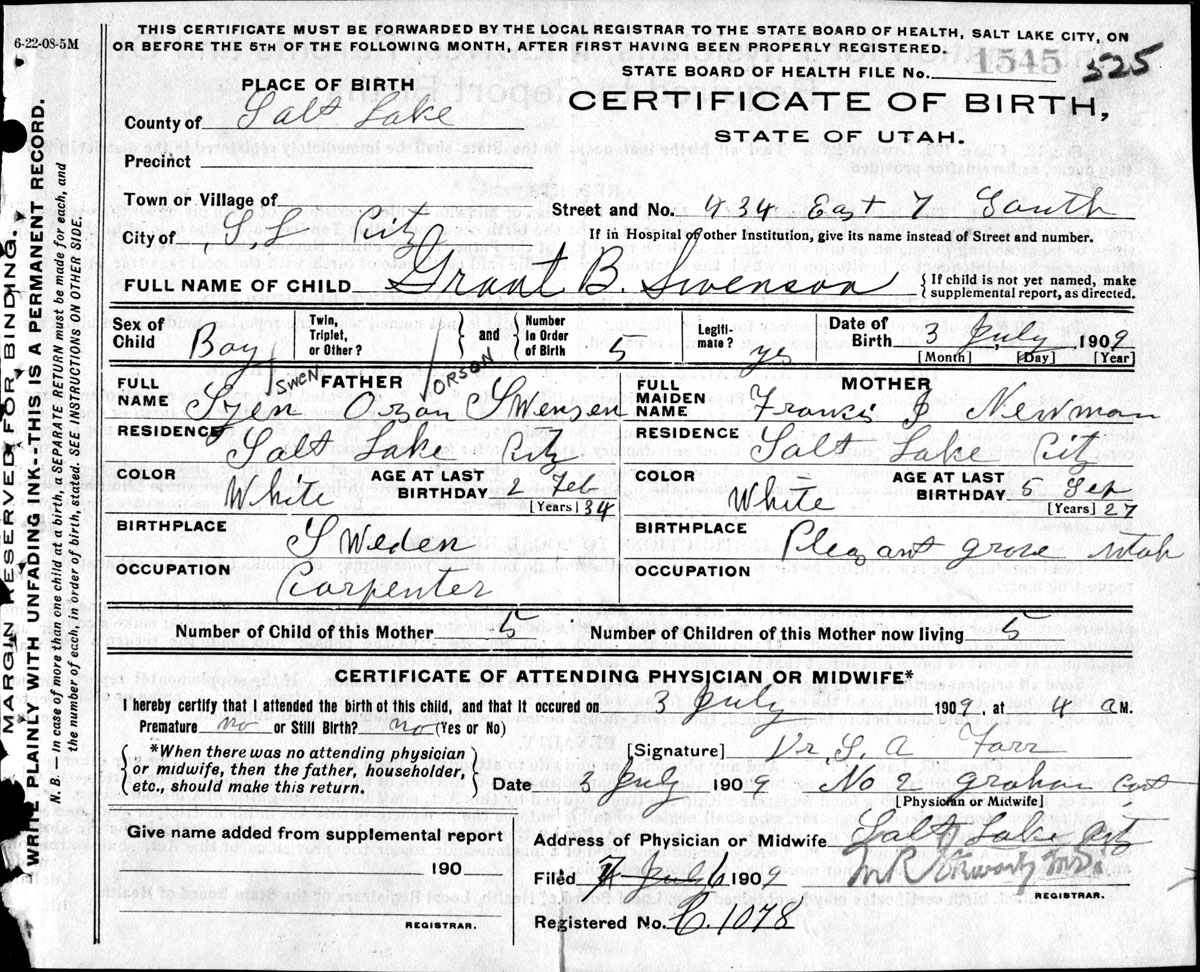 6-22-08-5M
THIS CERTIFICATE MUST BE FORWARDED BY THE LOCAL REGISTRAR TO THE STATE BOARD OF HEALTH, SALT LAKE CITY, ON
OR BEFORE THE 5TH OF THE FOLLOWING MONTH, AFTER FIRST HAVING BEEN PROPERLY REGISTERED.
STATE BOARD OF HEALTH FILE No. 1545 525
PLACE OF BIRTH
CERTIFICATE OF BIRTH,
STATE OF UTAH.
County of Salt Lake
Precinct
Town or Village of
Street and No. 434 East 7 South
City of S. L. City
If in Hospital or other Institution, give its name instead of Street and number.
FULL NAME OF CHILD Grant B. Swenson
{ If child is not yet named, make
supplemental report, as directed.
Sex of Child Boy
Twin, Triplet, or Other?
} and {
Number in Order of Birth 5
Legiti-mate? yes
Date of Birth 3 July 1909
[Month] [Day] [Year]
FATHER
SWEN ORSON
FULL NAME Szen Orson Swensen
RESIDENCE Salt Lake City
COLOR White
AGE AT LAST BIRTHDAY 2 Feb 34
[Years]
BIRTHPLACE Sweden
OCCUPATION Carpenter
MOTHER
FULL MAIDEN NAME Francis J Newman
RESIDENCE Salt Lake City
COLOR White
AGE AT LAST BIRTHDAY 5 Sep 27
[Years]
BIRTHPLACE Pleasant grove Utah
OCCUPATION
Number of Child of this Mother 5 Number of Children of this Mother now living 5
CERTIFICATE OF ATTENDING PHYSICIAN OR MIDWIFE*
I hereby certify that I attended the birth of this child, and that it occured on 3 July 1909, at 4 A M.
Premature no or Still Birth? no (Yes or No)
{ *When there was no attending physician
or midwife, then the father, householder,
etc., should make this return. }
[Signature] Dr S. A Farr
Date 5 July 1909 No 2 graham Cort
[Physician or Midwife]
Give name added from supplemental report
190
REGISTRAR.
Address of Physician or Midwife Salt Lake City
Filed 7 July 6 1909
REGISTRAR.
Registered No. C. 1078
MARGIN RESERVED FOR BINDING
WRITE PLAINLY WITH UNFADING INK--THIS IS A PERMANENT RECORD.
N. B. In case of more than one child at a birth, a SEPARATE RETURN must be made for each, and
the number of each, in order of birth, stated. SEE INSTRUCTIONS ON OTHER SIDE.